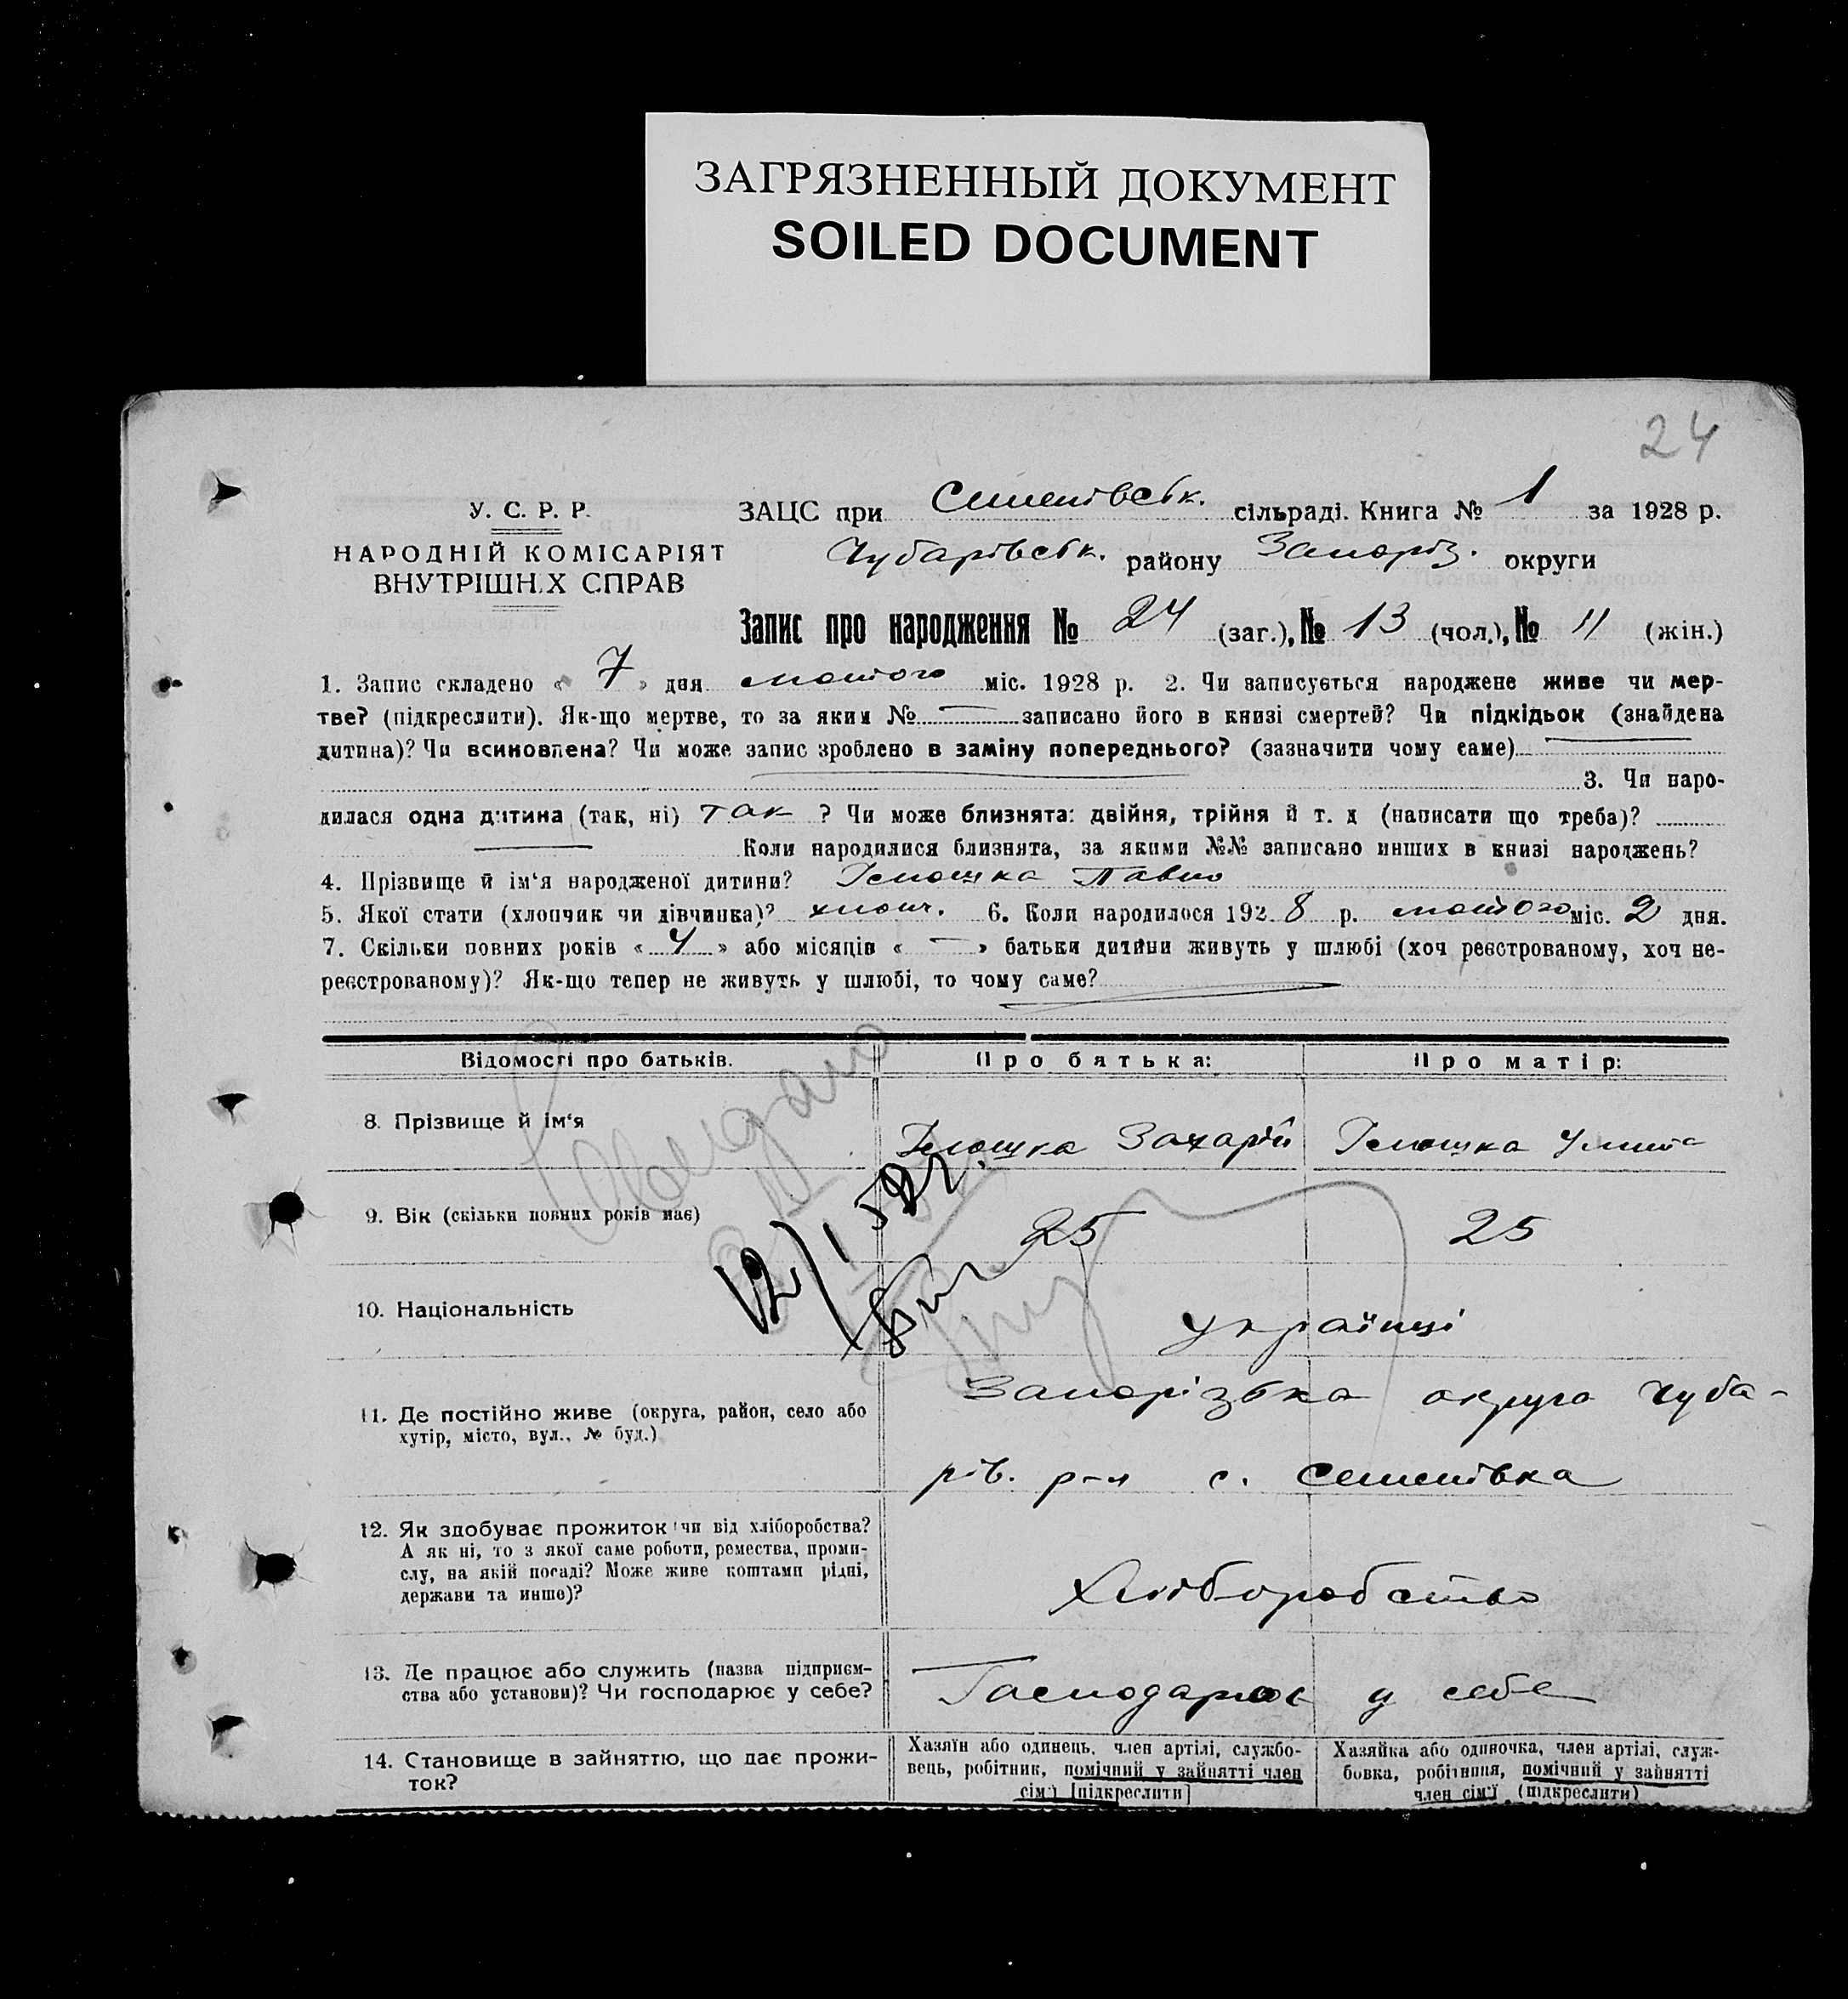 ЗАГРЯЗНЕННЫЙ ДОКУМЕНТ
SOILED DOCUMENT
24
У. С. Р. Р.
НАРОДНІЙ КОМІСАРІЯТ
ВНУТРІШНІХ СПРАВ
ЗАЦС при Семенівськ. сільраді. Книга № 1 за 1928 р.
Чубарівськ. району Запоріз. округи
Запис про народження № 24 (заг.), № 13 (чол.), № 11 (жін.)
1. Запис складено « 7 » дня лютого міс. 1928 р. 2. Чи записується народжене живе чи мер-
тве? (підкреслити). Як-що мертве, то за яким № — записано його в книзі смертей? Чи підкідьок (знайдена
дитина)? Чи всиновлена? Чи може запис зроблено в заміну попереднього? (зазначити чому саме)
3. Чи наро-
дилася одна дитина (так, ні) так ? Чи може близнята: двійня, трійня й т. д (написати що треба)?
Коли народилися близнята, за якими №№ записано инших в книзі народжень?
4. Прізвище й ім‘я народженої дитини? Гелюшка Павло
5. Якої стати (хлопчик чи дівчинка)? хлопч. 6. Коли народилося 192 8 р. лютого міс. 2 дня.
7. Скільки повних років « 4 » або місяців « — » батьки дитини живуть у шлюбі (хоч реєстрованому, хоч не-
реєстрованому)? Як-що тепер не живуть у шлюбі, то чому саме?
Відомості про батьків. Про батька: Про матір:
8. Прізвище й ім‘я Гелюшка Захарій Гелюшка Улита
9. Вік (скільки повних років має) 25 25
10. Національність українці
11. Де постійно живе (округа, район, село або
хутір, місто, вул., № буд.)
Запорізька округа Чуба-
рів. р-н с. Семенівка
12. Як здобуває прожиток чи від хліборобства?
А як ні, то з якої саме роботи, ремества, проми-
слу, на якій посаді? Може живе коштами рідні,
держави та инше)?
Хліборобство
13. Де працює або служить (назва підприєм-
ства або установи)? Чи господарює у себе?
Господарює у себе
14. Становище в зайняттю, що дає прожи-
ток?
Хазяїн або одинець, член артілі, службо-
вець, робітник, помічний у зайнятті член
сім‘ї [підкреслити]
Хазяйка або одиночка, член артілі, служ-
бовка, робітниця, помічний у зайнятті
член сім‘ї (підкреслити)